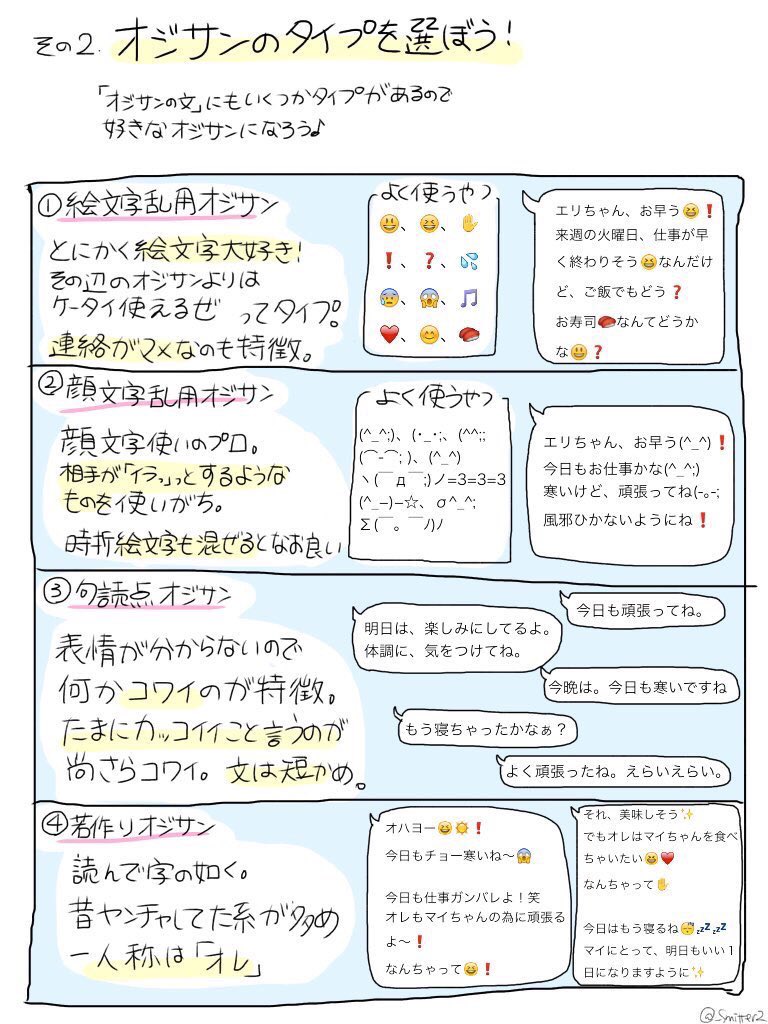 その2. オジサンのタイプを選ぼう!
「オジサンの文」にもいくつかタイプがあるので
好きなオジサンになろう♪
①絵文字乱用オジサン
とにかく絵文字大好き!
その辺のオジサンよりは
ケータイ使えるぜ ってタイプ。
連絡がマメなのも特徴。
よく使うやつ
😃、😆、✋
❗、❓、💦
😰、😱、🎵
❤️、😊、🍣
エリちゃん、お早う😆❗
来週の火曜日、仕事が早
く終わりそう😆なんだけ
ど、ご飯でもどう❓
お寿司🍣なんてどうか
な😃❓
②顔文字乱用オジサン
顔文字使いのプロ。
相手が「イラッ」っとするような
ものを使いがち。
時折絵文字も混ぜるとなお良い
よく使うやつ
(^_^;)、(・_・;、(^^;;
(⌒-⌒; )、(^_^)
ヽ(￣д￣;)ノ=3=3=3
(^_−)−☆、σ^_^;
Σ(￣。￣ﾉ)ﾉ
エリちゃん、お早う(^_^)❗
今日もお仕事かな(^_^;)
寒いけど、頑張ってね(-｡-;
風邪ひかないようにね❗
③句読点オジサン
表情が分からないので
何かコワイのが特徴。
たまにカッコイイこと言うのが
尚さらコワイ。文は短かめ。
今日も頑張ってね。
明日は、楽しみにしてるよ。
体調に、気をつけてね。
今晩は。今日も寒いですね
もう寝ちゃったかなぁ？
よく頑張ったね。えらいえらい。
④若作りオジサン
読んで字の如く。
昔ヤンチャしてた系が多め
一人称は「オレ」
オハヨー😆☀️❗
今日もチョー寒いね〜😱
今日も仕事ガンバレよ！笑
オレもマイちゃんの為に頑張る
よ〜❗
なんちゃって😆❗
それ、美味しそう✨
でもオレはマイちゃんを食べ
ちゃいたい😆❤️
なんちゃって✋
今日はもう寝るね😴💤💤
マイにとって、明日もいい１
日になりますように✨